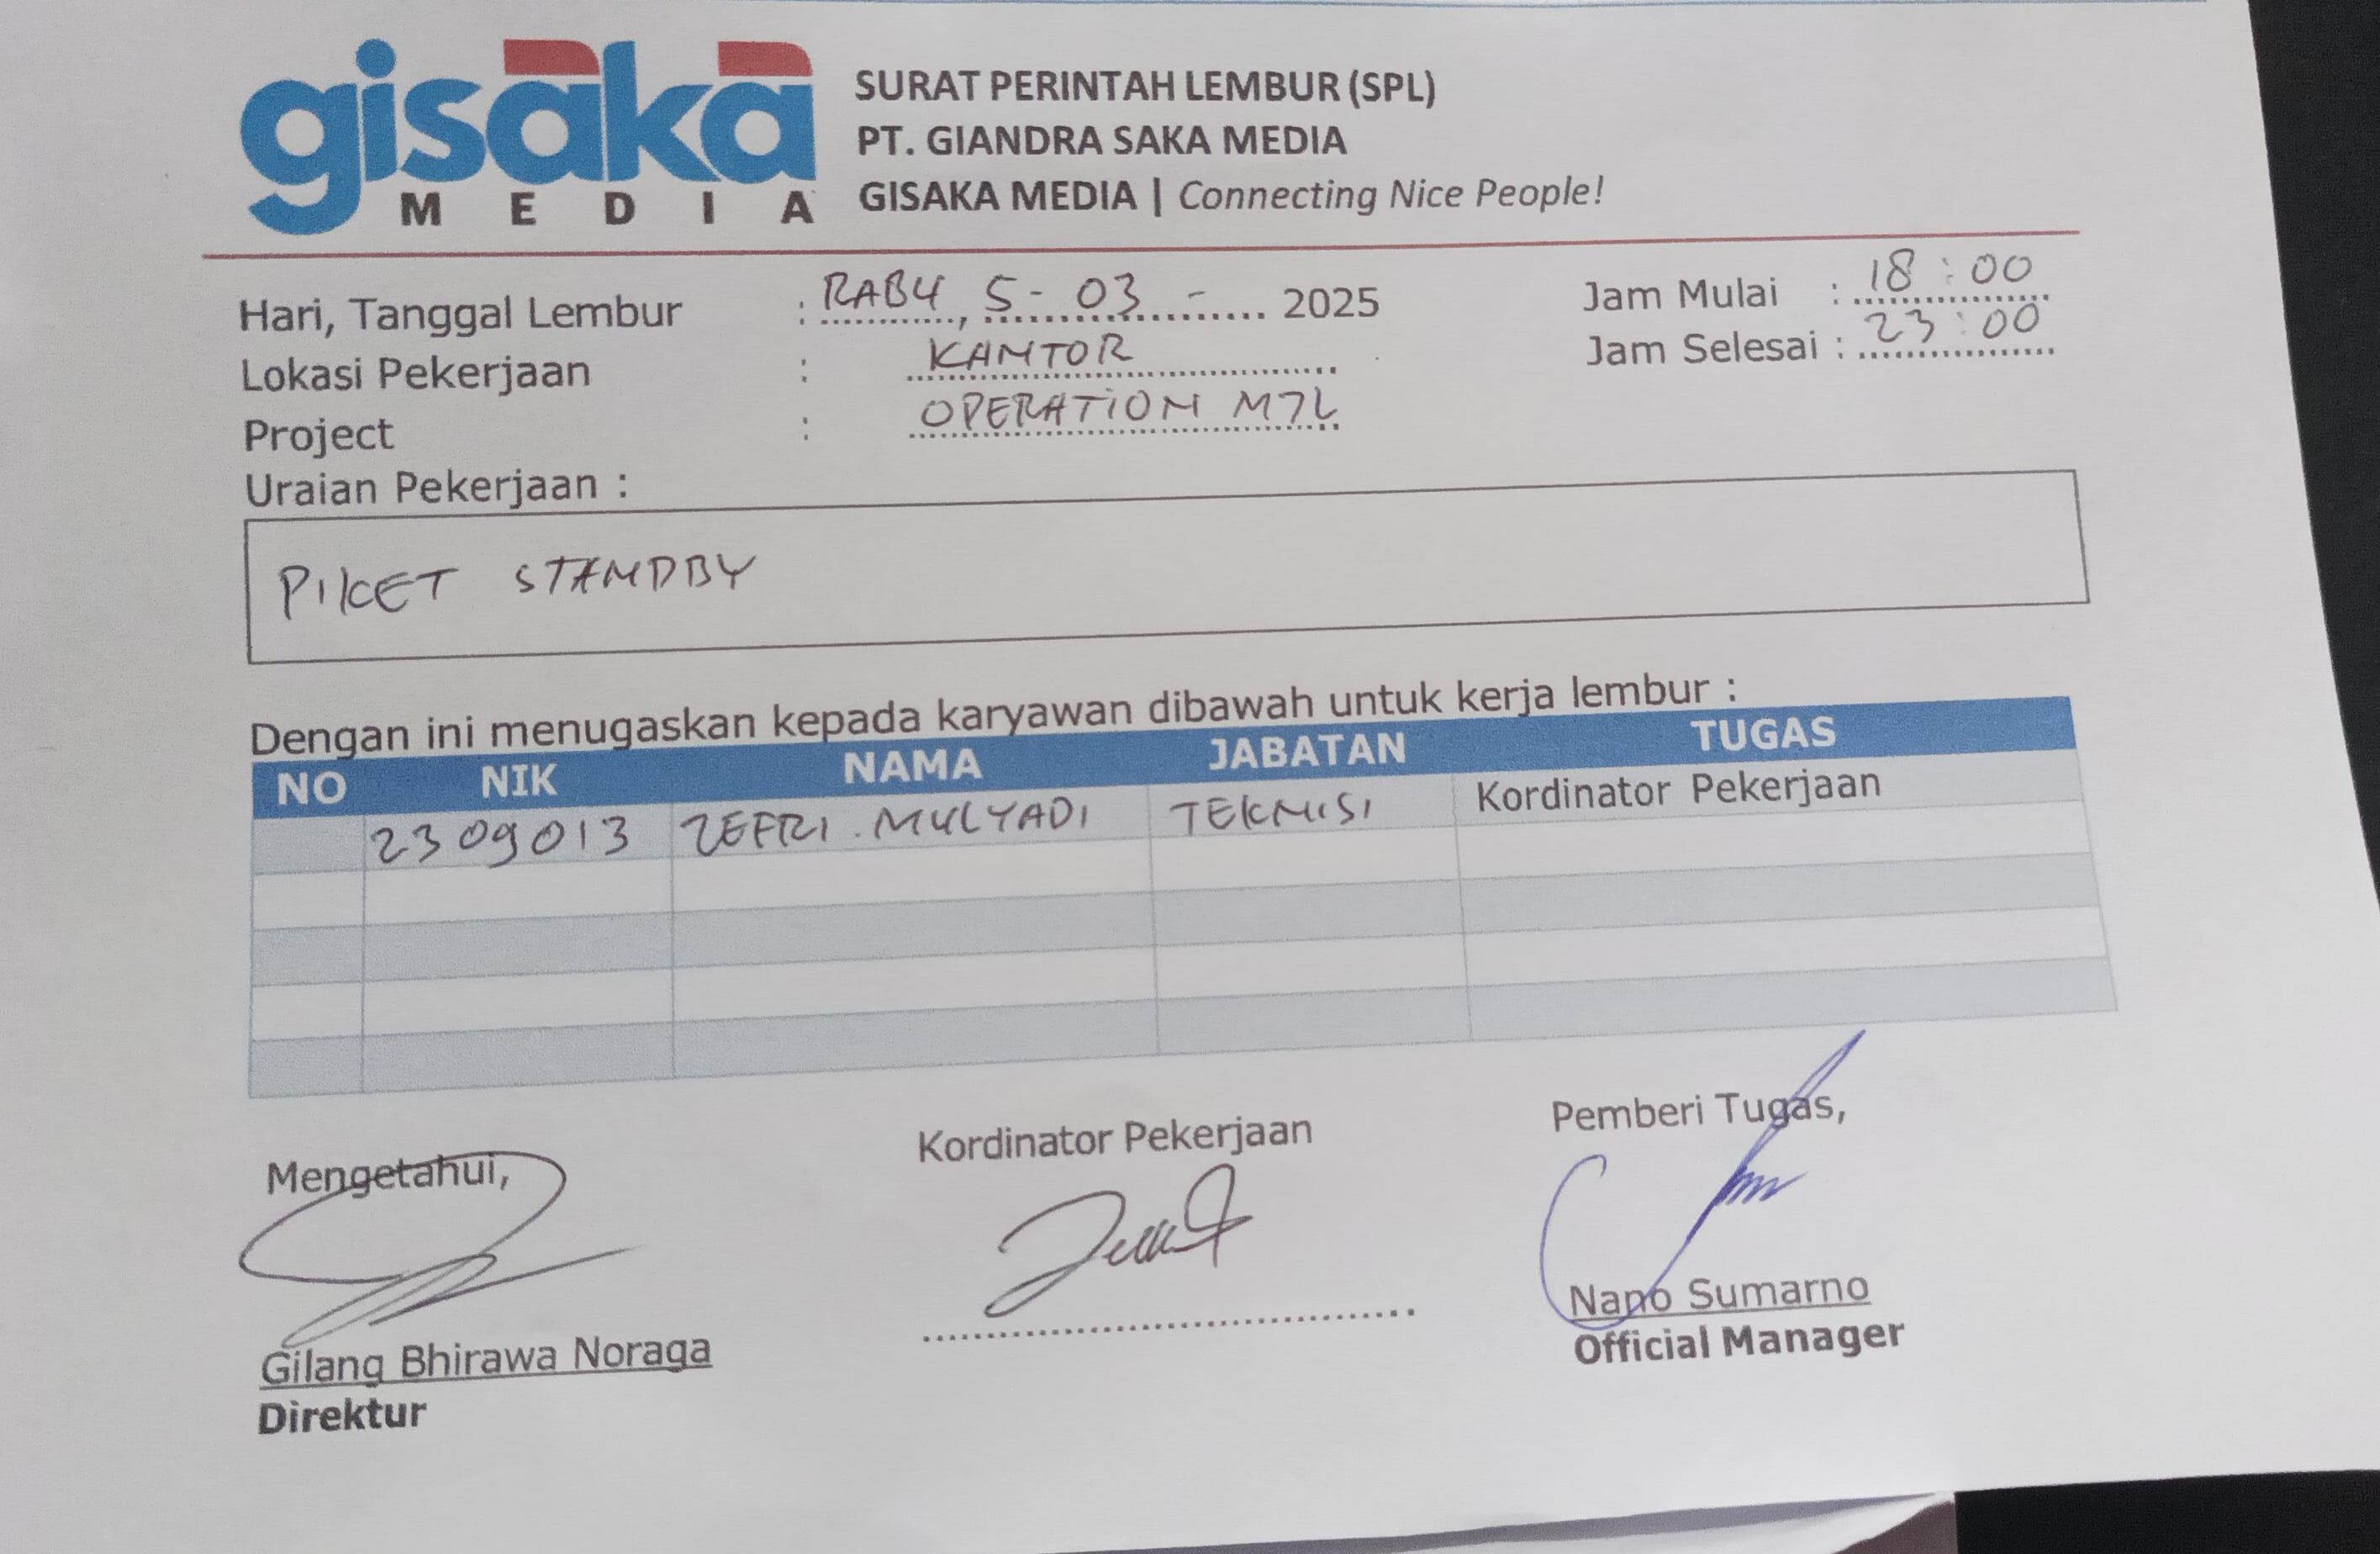 gisaka
MEDIA
SURAT PERINTAH LEMBUR (SPL)
PT. GIANDRA SAKA MEDIA
GISAKA MEDIA | Connecting Nice People!
Hari, Tanggal Lembur : RABU, 5 - 03 - 2025 Jam Mulai : 18 : 00
Lokasi Pekerjaan : KANTOR Jam Selesai : 23 : 00
Project : OPERATION MTL
Uraian Pekerjaan :
PIKET STANDBY
Dengan ini menugaskan kepada karyawan dibawah untuk kerja lembur :
NO NIK NAMA JABATAN TUGAS
2309013 ZEFRI . MULYADI TEKNISI Kordinator Pekerjaan
Mengetahui, Kordinator Pekerjaan Pemberi Tugas,
Gilang Bhirawa Noraga Nano Sumarno
Direktur Official Manager